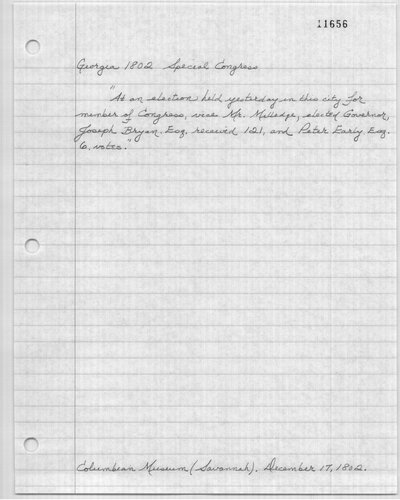 11656
Georgia 1802 Special Congress
"At an election held yesterday in this city for
member of Congress, vice Mr. Milledge, elected Governor,
Joseph Bryan. Esq. received 121, and Peter Early Esq.
6, votes."
Columbian Museum (Savannah). December 17, 1802.